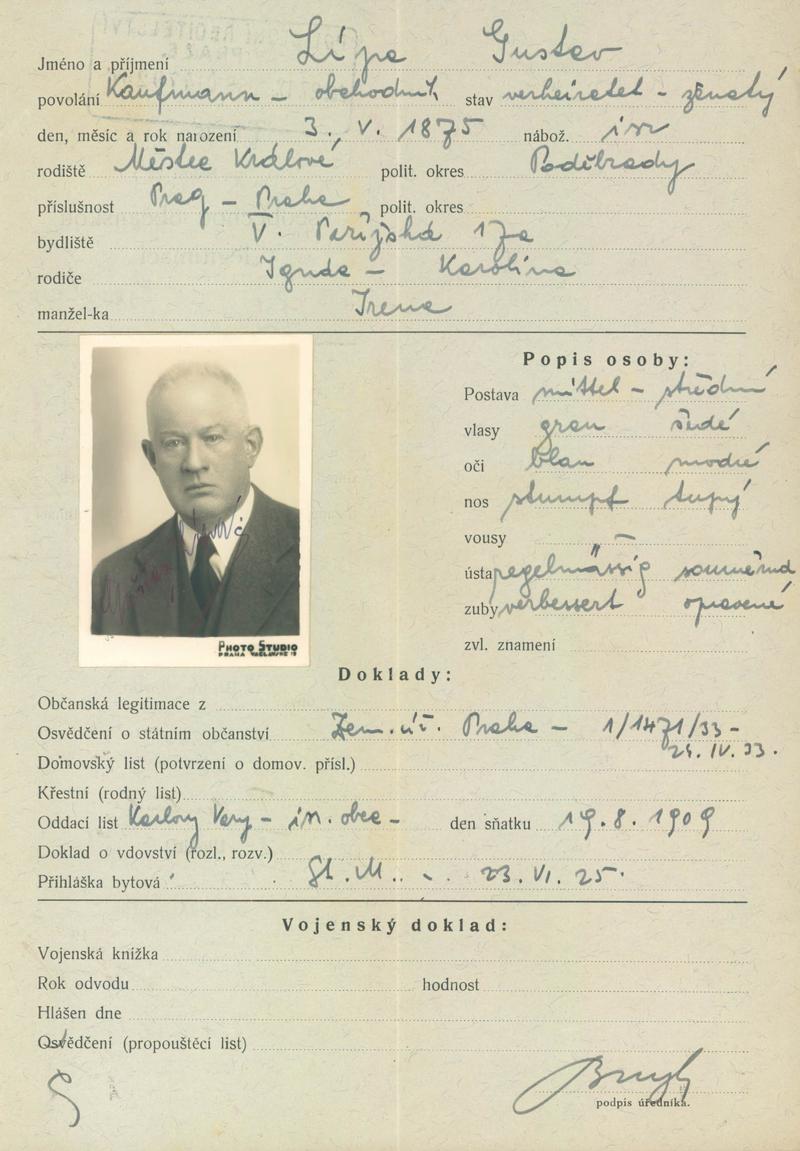 Jméno a příjmení Lípa Gustav
povolání Kaufmann – obchodník stav verheiratet – ženatý
den, měsíc a rok narození 3. V. 1875 nábož. isr
rodiště Městec Králové polit. okres Poděbrady
příslušnost Prag – Praha polit. okres
bydliště V. Pařížská 17a
rodiče Ignác – Karolína
manžel-ka Irena
Popis osoby:
Postava mittel – střední
vlasy grau šedé
oči blau modré
nos stumpf tupý
vousy –
ústa regelmässig souměrná
zuby verbessert opravené
zvl. znamení
PHOTO STUDIO
Doklady:
Občanská legitimace z
Osvědčení o státním občanství Zem. úř. Praha – 1/1471/33 –
24. IV. 33.
Domovský list (potvrzení o domov. přísl.)
Křestní (rodný list)
Oddací list Karlovy Vary – isr. obec – den sňatku 19. 8. 1909
Doklad o vdovství (rozl., rozv.)
Přihláška bytová St. M. 23. VI. 25.
Vojenský doklad:
Vojenská knížka
Rok odvodu hodnost
Hlášen dne
Osvědčení (propouštěcí list)
podpis úředníka.